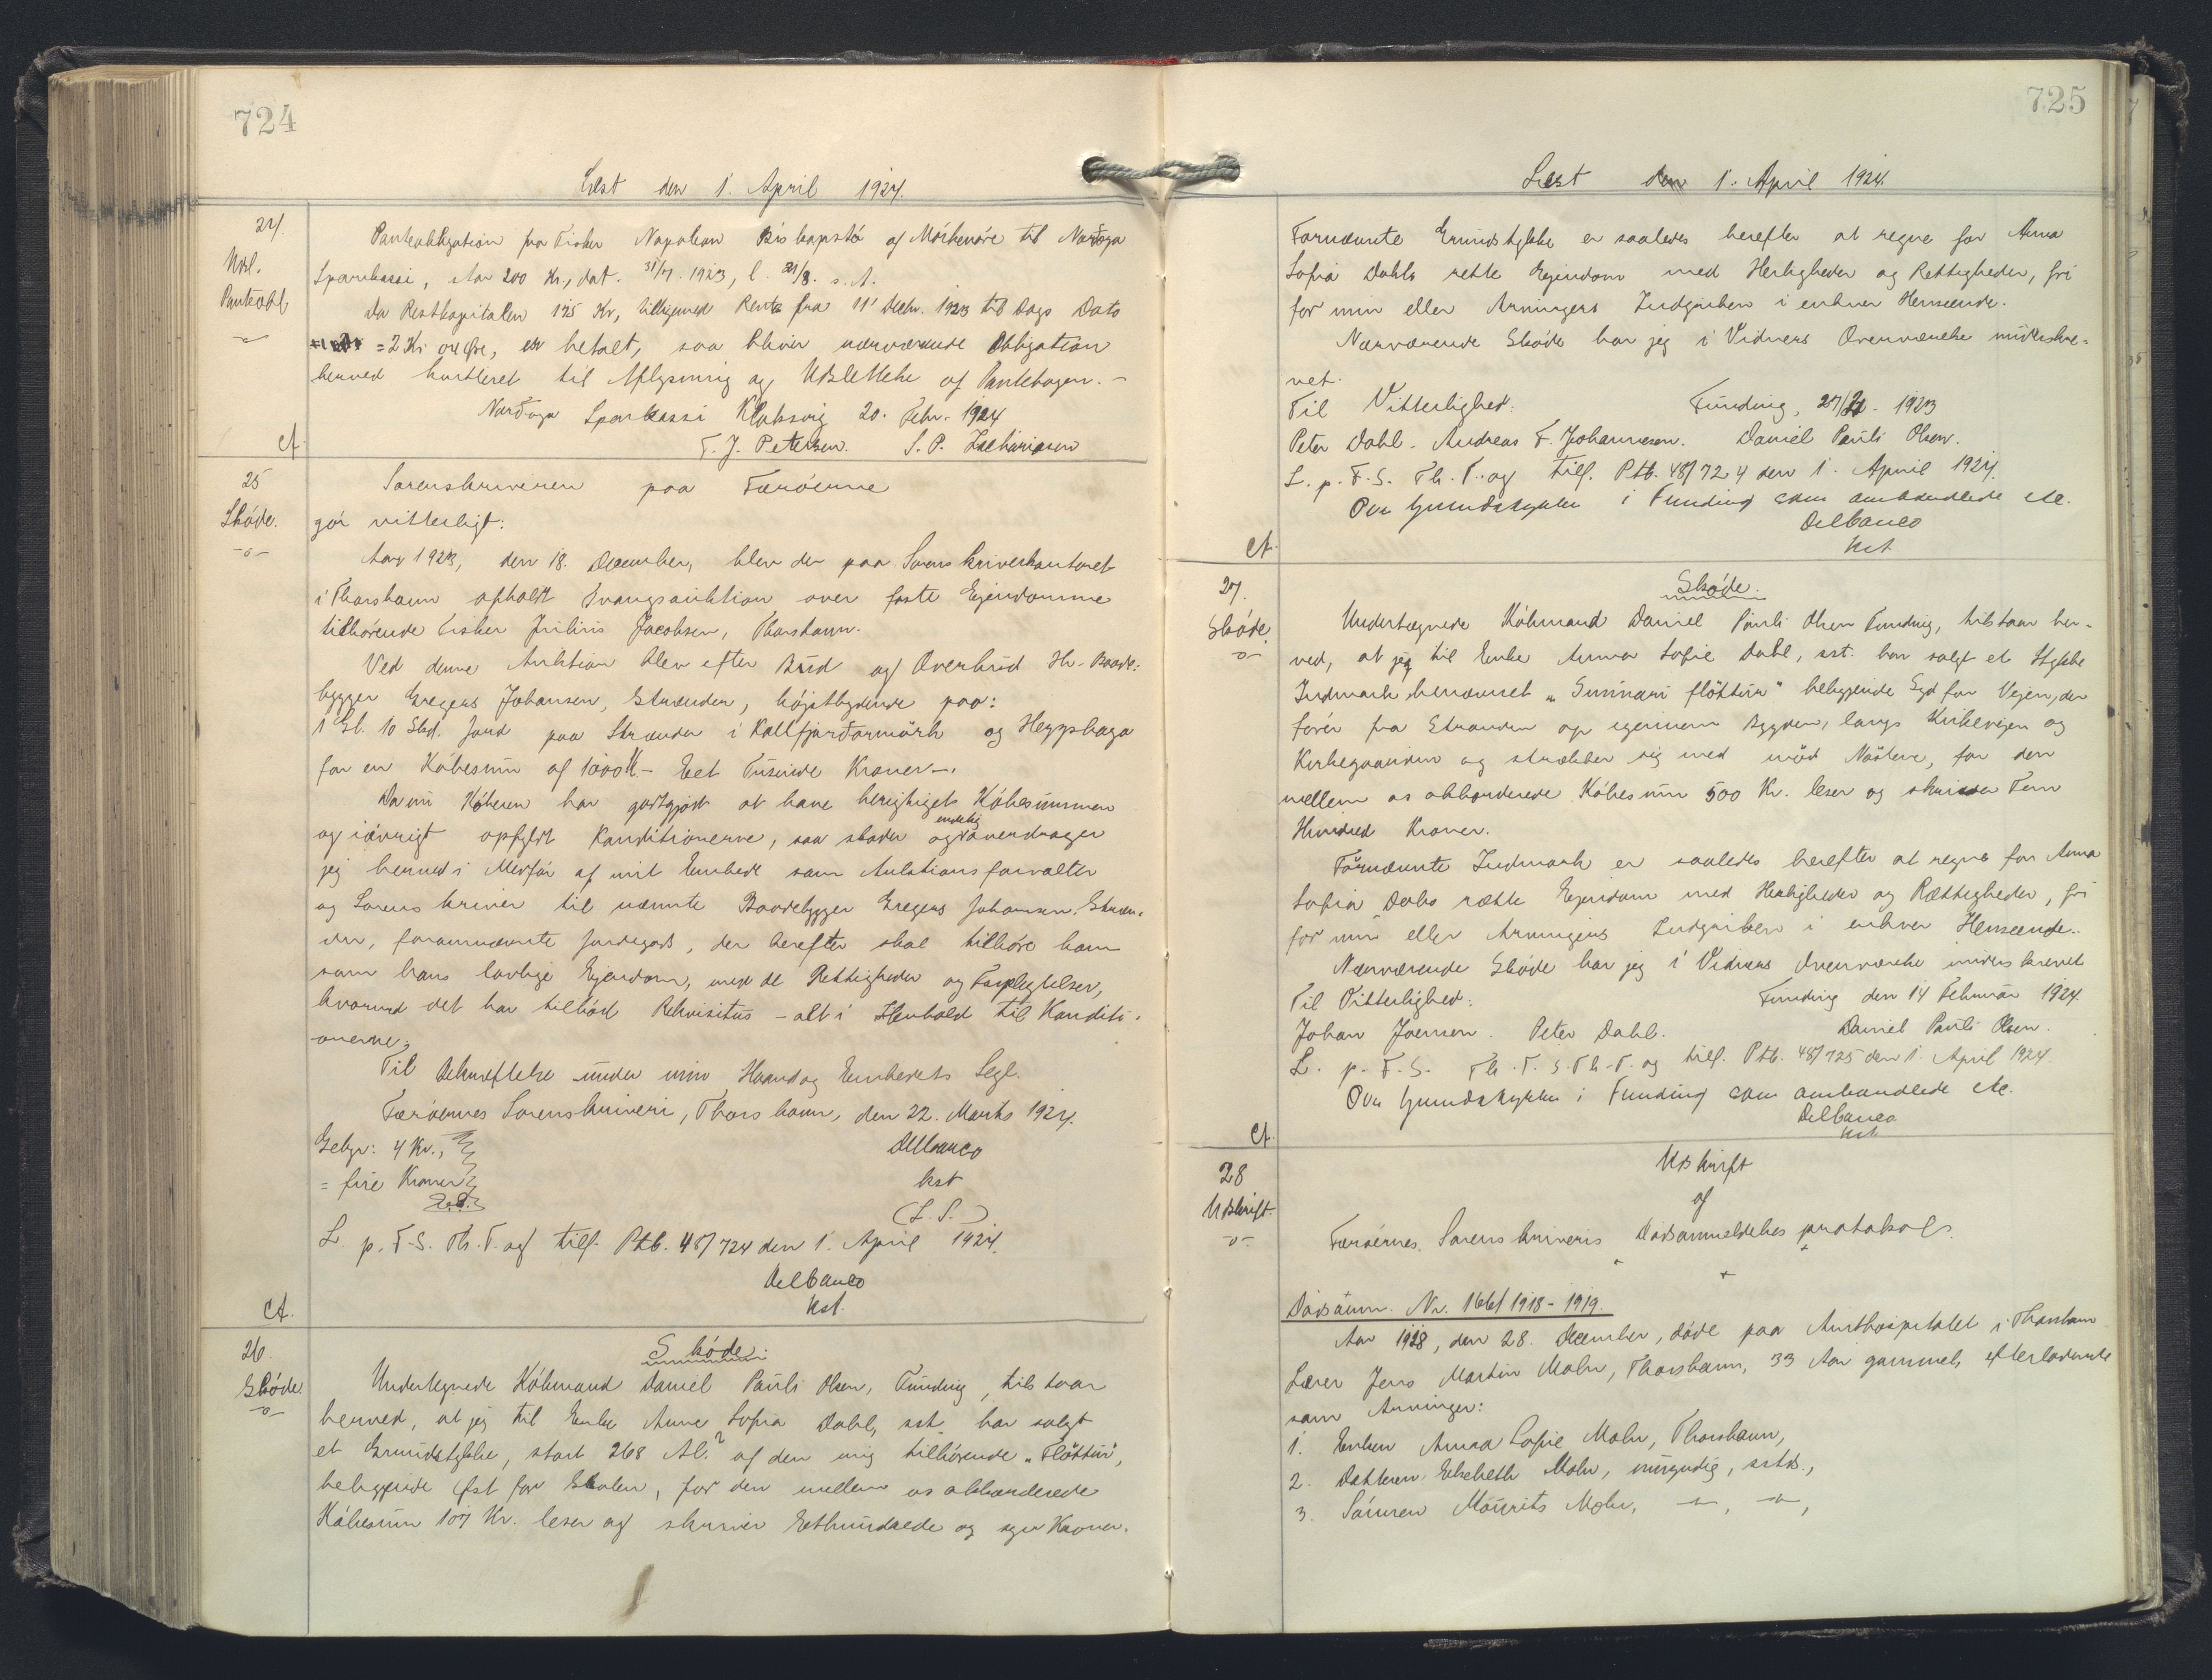 724
Læst den 1. April 1924.
24.
Udsl.
Panteobl
Panteobligation fra Fisker Napolion Biskapstø af Mórkenöre til Nordoya
Sparikassi, stor 200 Kr., dat. 31/7. 1923, l. 21/8. s. A.
Da Restkapitalen 125 Kr, tilligemed Rente fra 11' Decbr. 1923 til Dags Dato
= 2 Kr. Øre, er betalt, saa bliver nærværende Obligation
herved kvitteret til Aflysning og Udslettelse af Pantebogen. -
Nordoya Sparikassi Klaksvig 20. Febr. 1924
T. J. Petersen. S. P. Zachariasen
ct
25
Skøde.
-o-
Sorenskriveren paa Færøerne
gør vitterligt:
Aar 1923, den 18. December, blev der paa Sorenskriverkontoret
i Thorshavn afholdt Tvangsauktion over faste Ejendomme
tilhørende Fisker Julius Jacobsen, Thorshavn.
Ved denne Auktion blev efter Bud og Overbud Hr. Baade-
bygger Gregers Johansen, Strænder, højstbydende paa:
1 Gl. 10 Skd. Jord paa Strænder i Kallfjardarmörk og Heygshaga
for en Købesum af 1000 Kr - Eet Tusinde Kroner -.
Da nu Køberen har godtgjort at have berigtiget Købesummen
og iøvrigt opfyldt Konditionerne, saa skøder og endelig overdrager
jeg herved i Medfør af mit Embede som Auktionsforvalter
og Sorenskriver til nævnte Baadebygger Gregers Johansen, Stræn-
der, forannævnte Jordegods, der herefter skal tilhøre ham
som hans lovlige Ejendom, med de Rettigheder og Forpligtelser,
hvormed det har tilhørt Rekvisitus - alt i Henhold til Konditi-
onerne.
Til Bekræftelse under min Haand og Embedets Segl.
Færøernes Sorenskriveri, Thorshavn, den 22. Marts 1924.
Gebyr: 4 Kr.,
= fire Kroner
Delbanco
kst
(L. S.)
L. p. F. S. Th. T. og tilf. Ptb. 48/724 den 1. April 1924.
Delbanco
kst.
ct.
26.
Skøde.
-o-
Skøde.
Undertegnede Købmand Daniel Pauli Olsen, Funding, tilstaar
herved, at jeg til Enke Anna Sofia Dahl, sst. har solgt
et Grundstykke, stort 268 Al.² af den mig tilhørende "Fløttur",
beliggende Øst for Skolen, for den mellem os akkorderede
Købesum 107 Kr. leser og skriver Ethundrede og syv Kroner.
725
Læst den 1. April 1924.
Fornævnte Grundstykke er saaledes herefter at regne for Anna
Sofia Dahls rette Ejendom med Herligheder og Rettigheder, fri
for min eller Arvingers Indgriben i enhver Henseende.
Nærværende Skøde har jeg i Vidners Overværelse underskre-
vet.
Til Vitterlighed: Funding, 27/12. 1923
Peter Dahl. Andreas F. Johannesen. Daniel Pauli Olsen.
L. p. F. S. Th. T. og tilf. Ptb. 48/724 den 1. April 1924.
Over Grundstykker i Funding som ombandlede etc.
Delbanco
kst
ct.
27.
Skøde.
-o-
Skøde.
Undertegnede Købmand Daniel Pauli Olsen Funding, tilstaar her-
ved, at jeg til Enke Anna Sofie Dahl, sst. har solgt et Stykke
Indmark benævnet "Sunnari fløttur" beliggende Syd for Vejen, der
fører fra Stranden op igennem Bygden, langs Kirkevejen og
Kirkegaarden og strækker sig ned mod Nöstene, for den
mellem os akkorderede Købesum 500 Kr. leser og skriver Fem
Hundred Kroner.
Fornævnte Indmark er saaledes herefter at regne for Anna
Sofia Dahls rette Ejendom med Herligheder og Rettigheder, fri
for min eller Arvingers Indgriben i enhver Henseende.
Nærværende Skøde har jeg i Vidners Overværelse underskrevet
Til Vitterlighed: Funding den 14 Februar 1924.
Johan Joensen. Peter Dahl. Daniel Pauli Olsen.
L. p. F. S. Th. T. S. Th. T. og tilf. Ptb. 48/725 den 1. April 1924
Over Grundstykker i Funding som ombandlede etc.
Delbanco
kst
ct.
28
Udskrift.
-o-
Udskrift
af
Færøernes Sorenskriveris Dødsanmeldelsesprotokol.
Dødsanm. Nr. 166/1918-1919.
Aar 1918, den 28. December, døde paa Amtshospitalet i Thorshavn
Lærer Jens Martin Mohr, Thorshavn, 33 Aar gammel, efterladende
som Arvinger:
1. Enken Anna Sofie Mohr, Thorshavn,
2. Datteren Elsebeth Mohr, umyndig, sstds.,
3. Sønnen Mourits Mohr, -"-, -"-,